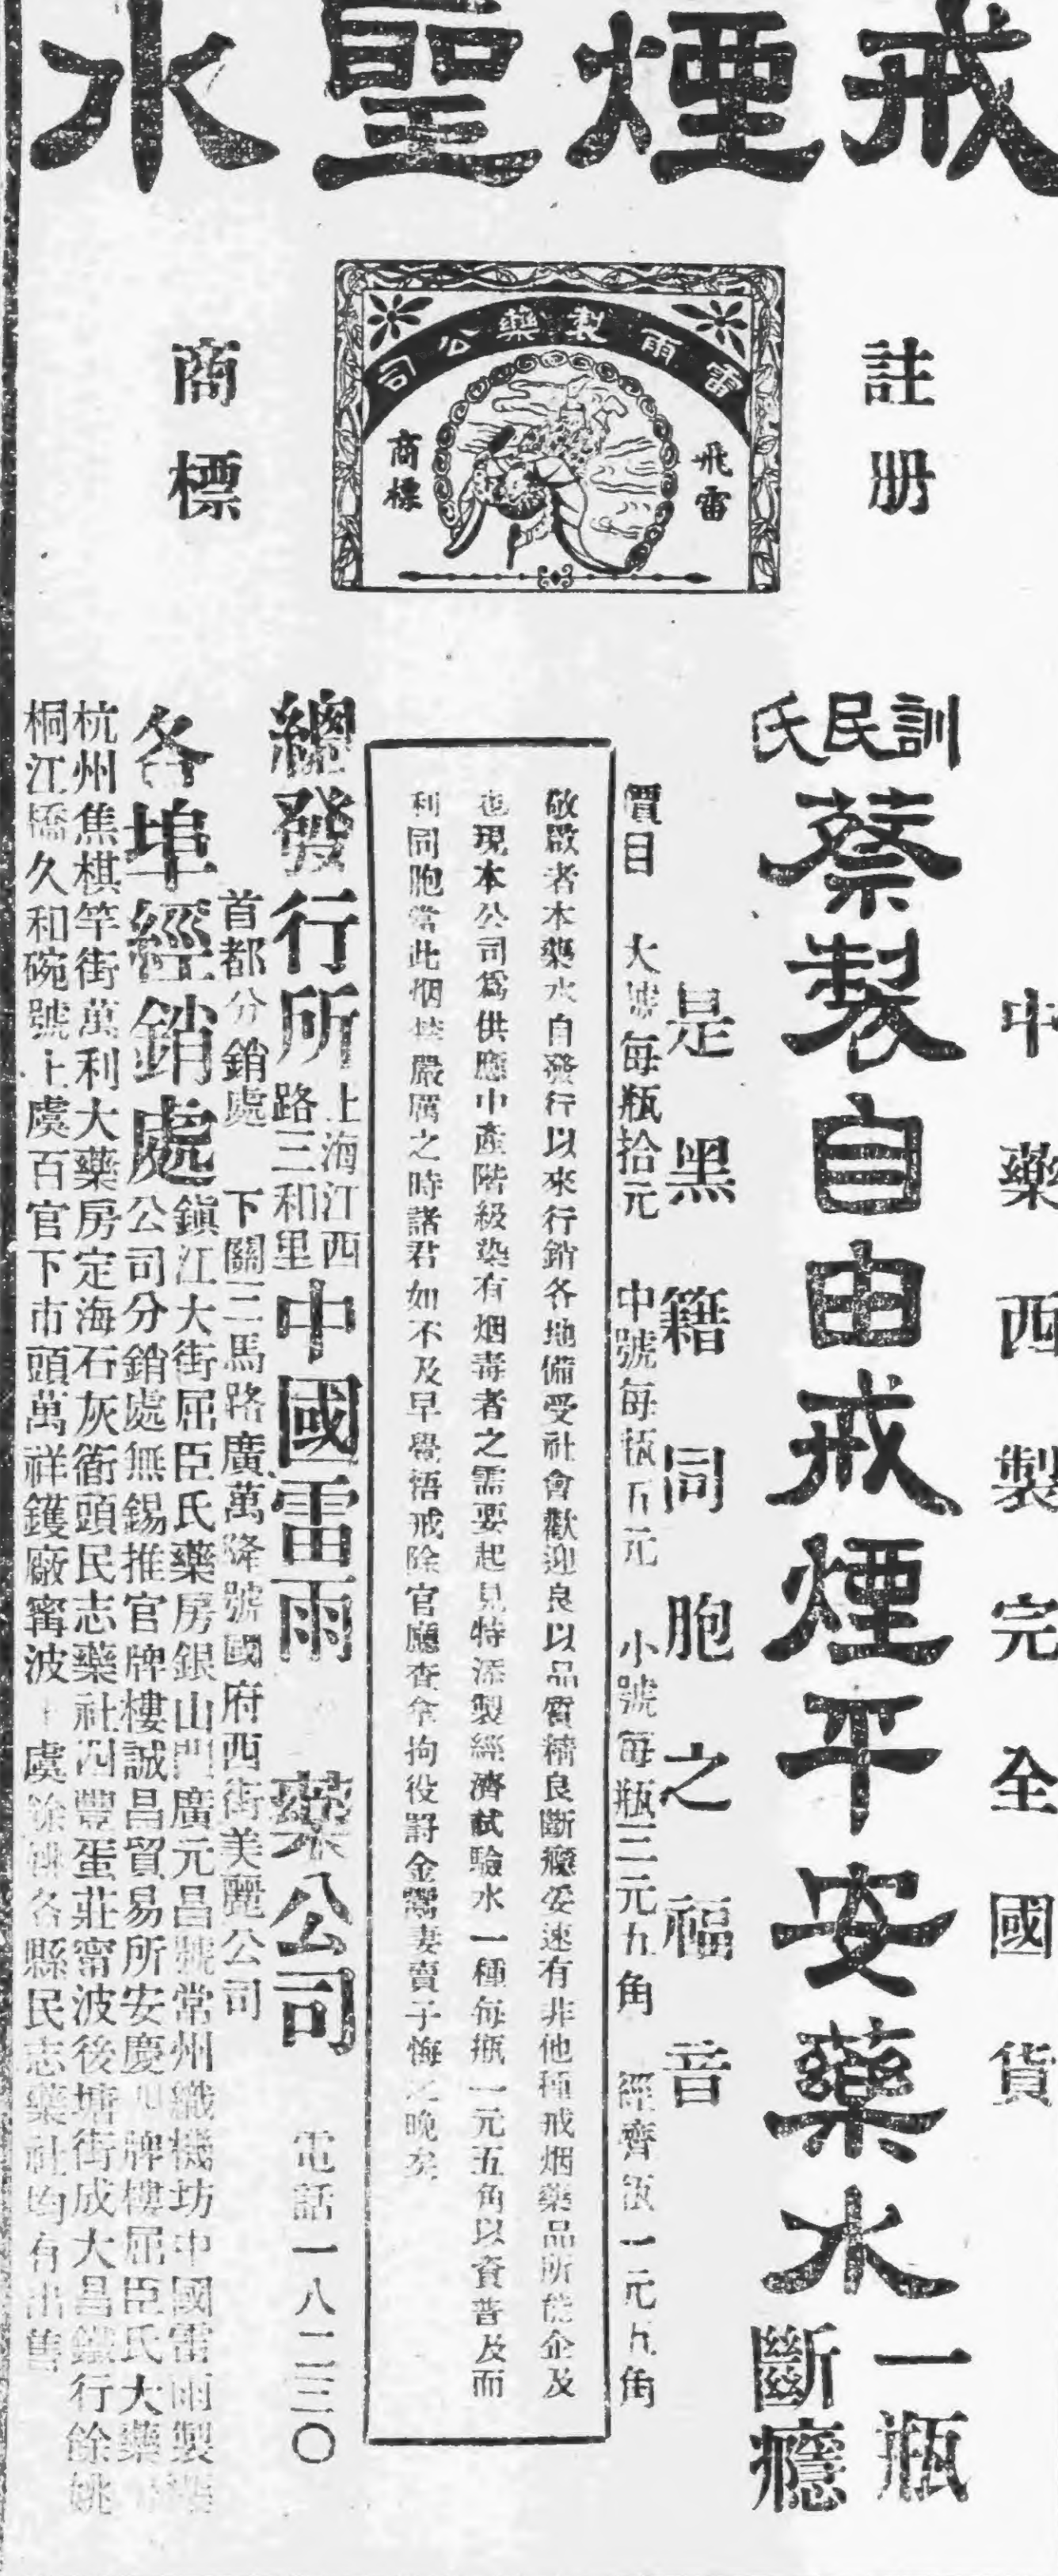 戒煙聖水
註册
商標
雷雨製藥公司
飛雷
商標
中藥西製完全國貨
訓民氏
蔡製自由戒煙平安藥水
一瓶
斷癮
是黑籍同胞之福音
價目 大號每瓶拾元 中號每瓶五元 小號每瓶三元九角 經濟瓶一元五角
敬啟者本藥水自發行以來行銷各地備受社會歡迎良以品質精良斷癮妥速有非他種戒烟藥品所能企及
也現本公司爲供應中產階級染有烟毒者之需要起見特添製經濟試驗水一種每瓶一元五角以資普及而
利同胞當此烟禁嚴厲之時諸君如不及早覺悟戒除官廳查拿拘役罸金鬻妻賣子悔之晚矣
總發行所
上海江西
路三和里
中國雷雨 藥公司 電話一八二三〇
首都分銷處 下關二馬路廣萬隆號國府西街美麗公司
各埠經銷處
鎭江大街屈臣氏藥房銀山門廣元昌號常州織機坊中國雷雨製藥
公司分銷處無錫推官牌樓誠昌貿易所安慶四牌樓屈臣氏大藥房
杭州焦棋竿街萬利大藥房定海石灰衖頭民志藥社四豐蛋莊甯波後塘街成大昌鐵行餘姚
桐江橋久和碗號上虞百官下市頭萬祥鑊廠甯波上虞餘姚各縣民志藥社均有出售